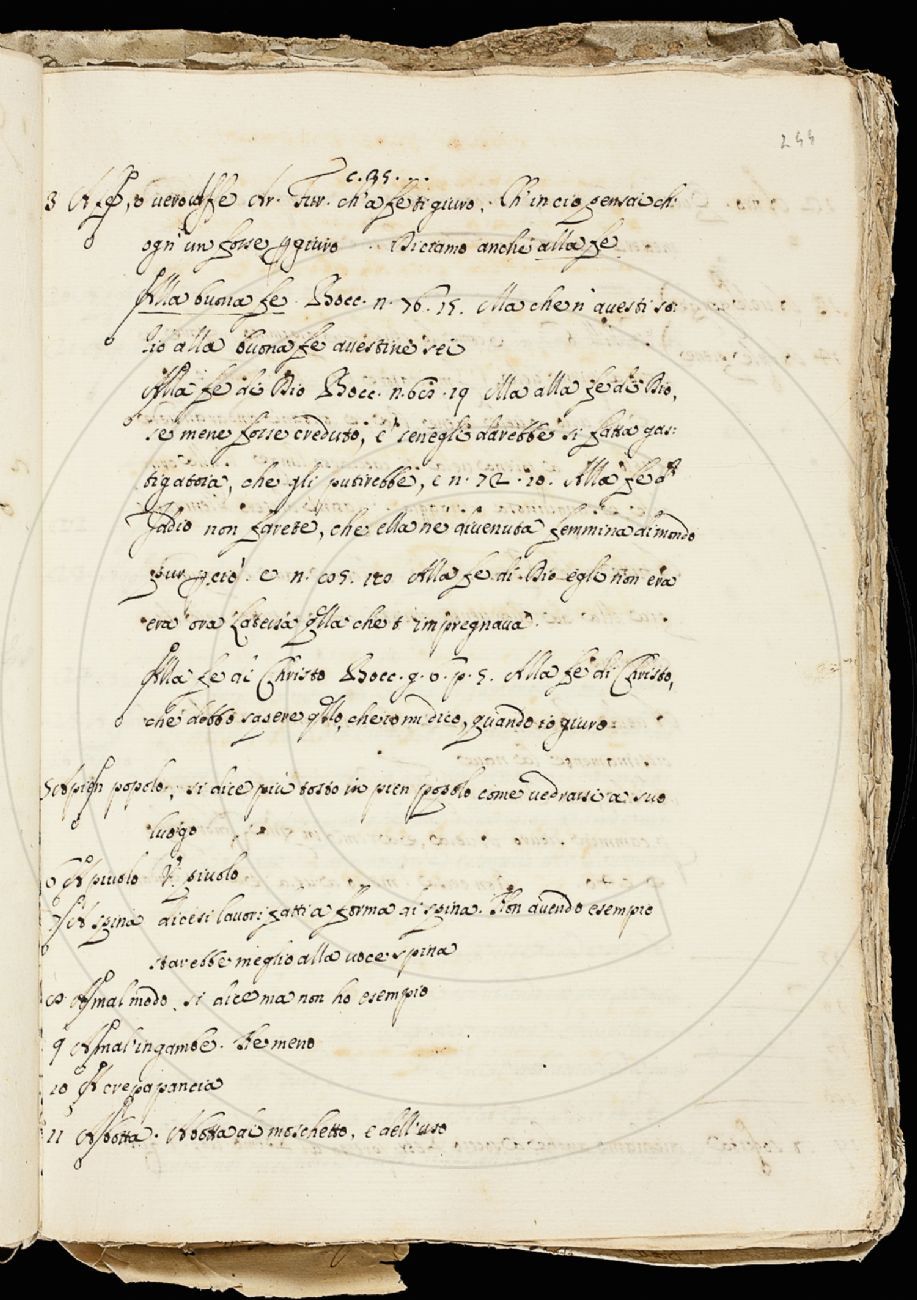 244
c. 35. . .
3 A fè, o vero affe Ar. Fur. ch'a fe ti giuro, Ch'in ciò pensai ch'
ogn'un fosse pgiuro . Diciamo anche alla fe
Alla buona fe. Bocc. n. 76. 15. Ma che n'avesti so:
zio alla buona fe avestine sei
Alla fe di Dio Bocc. n. 68. 19 Ma alla fe di Dio,
se mene fosse creduto, e' senegli darebbe si fatta gas:
tigatoia, che gli putirebbe, e n. 72. 10. Alla fe d'
Iddio non farete, che ella ne divenuta femmina di mondo
pur pciò. e n. 85. 20 Alla fe di Dio egli non era
era ora la teisa qlla che t' impregnava.
Alla fe di Christo Bocc. g. 6. p. 5. Alla fe di Christo,
che debbo sapere qllo, che io mi dico, quando io giuro
5 A pien popolo, si dice più tosto in pien popolo come vedrassi a suo
luogo
6 A piuolo V. piuolo
7 A spina dicesi lavori fatti a forma di spina. Non avendo esempio
starebbe meglio alla voce spina
8 A mal modo. si dice ma non ho esempio
9 A mal'in gambe. Ne meno
10 A crepapancia
11 A botta. A botta di moschetto, e dell'uso